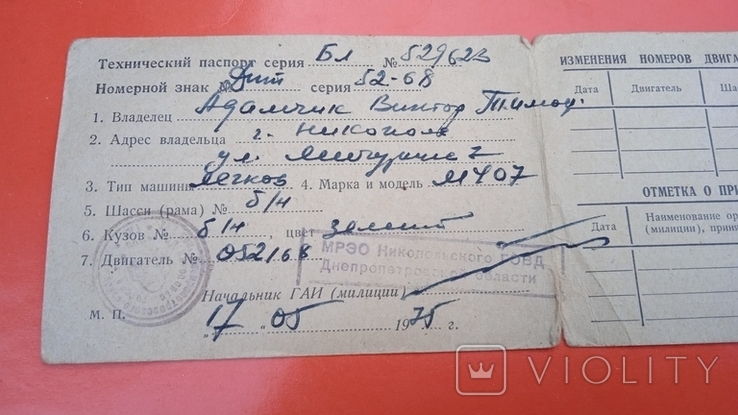 Технический паспорт серия БЛ № 529623
Номерной знак № Дит серия 52-68
1. Владелец Адамчик Виктор Тимоф.
2. Адрес владельца г. Никополь
ул. Мичурина 7
3. Тип машины легков 4. Марка и модель М407
5. Шасси (рама) № б/н
6. Кузов № б/н, цвет зелений
7. Двигатель № 052168
МРЭО Никопольского ГОВД
Днепропетровской области
Начальник ГАИ (милиции)
М. П.
"17" 05 1975 г.
ИЗМЕНЕНИЯ НОМЕРОВ ДВИГА
Дата Двигатель Ша
ОТМЕТКА О ПРИ
Дата Наименование ор
(милиции), прин
VIOLITY